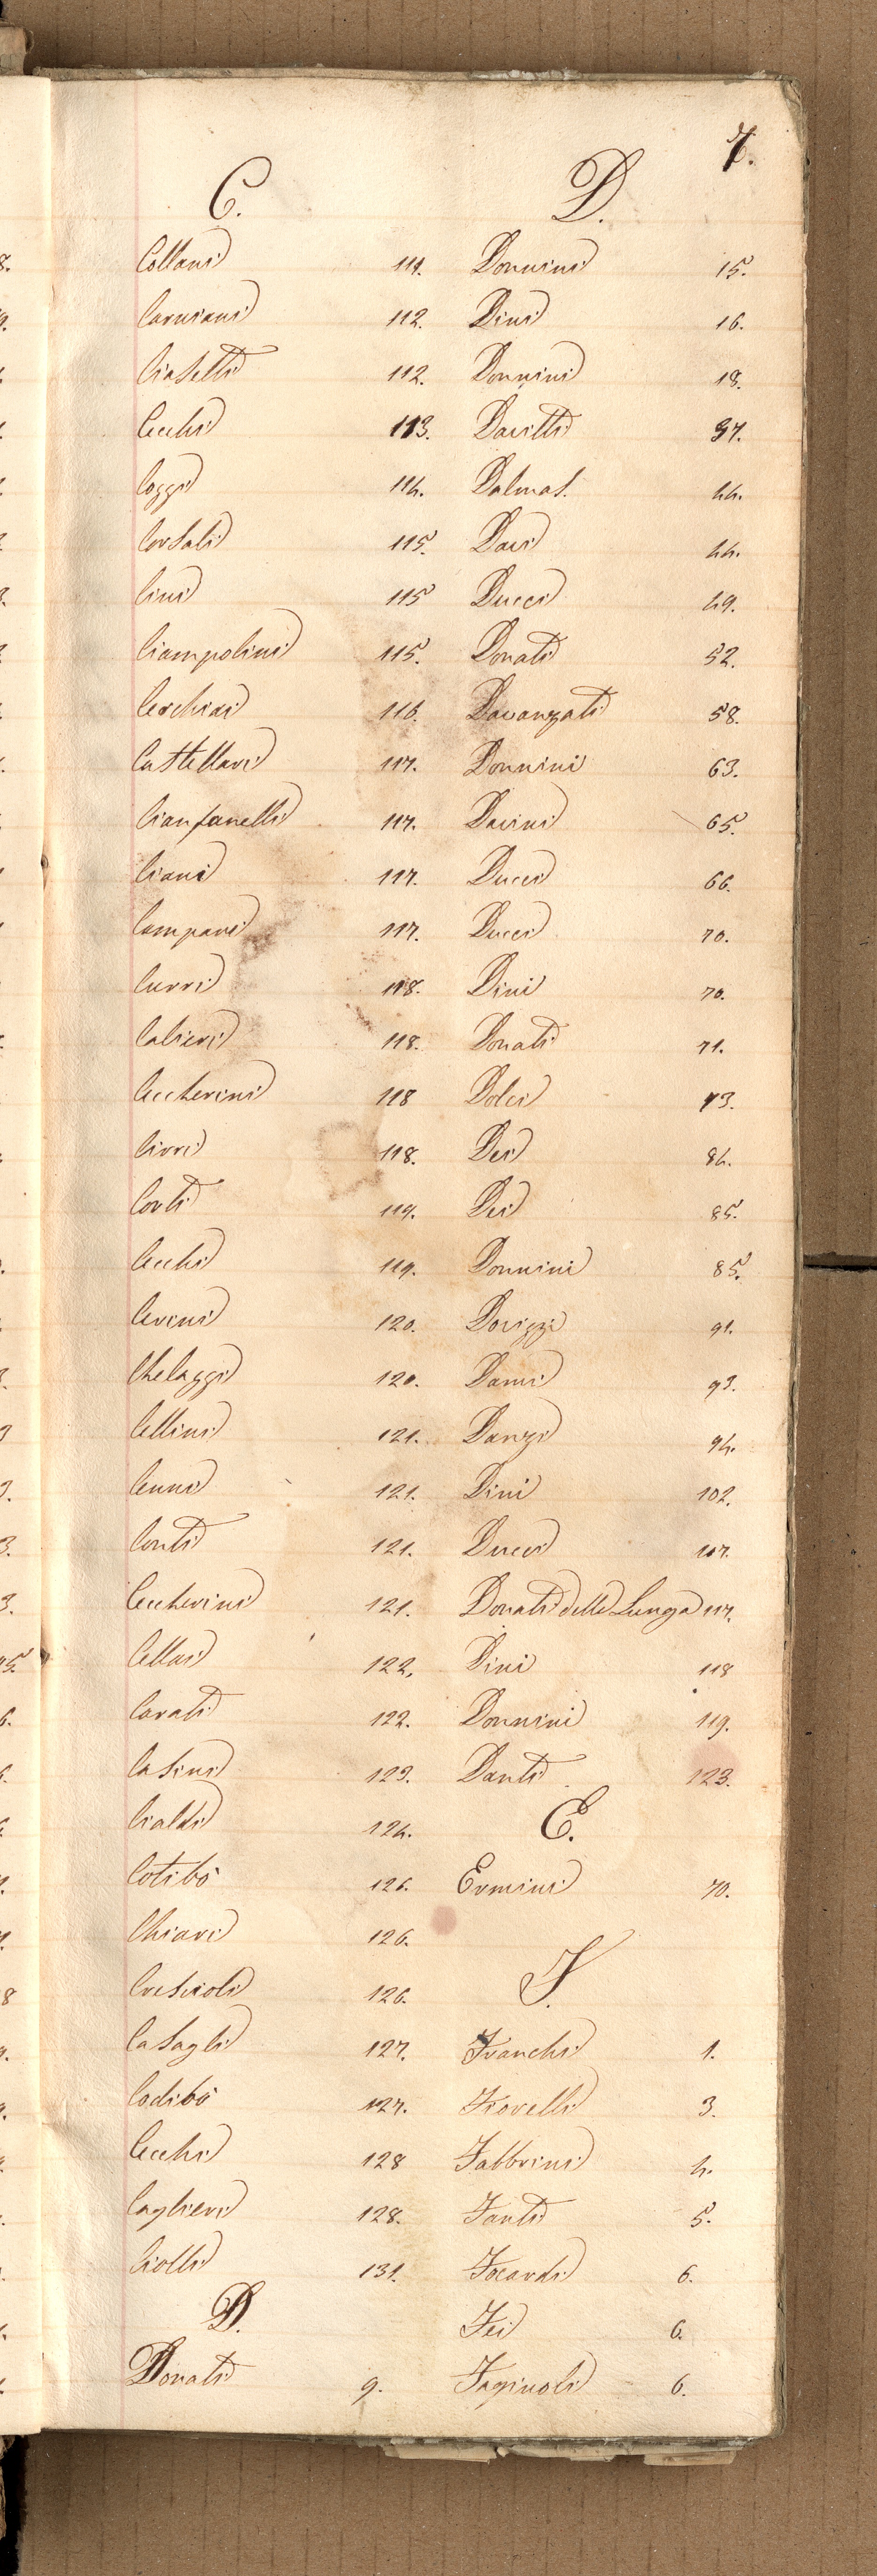 7.
C.
Collani 111.
Carniani 112.
Ciaselli 112.
Cecchi 113.
Coggi 114.
Corsali 115.
Cini 115
Ciampolini 115.
Cerchiai 116.
Castellani 117.
Cianfanelli 117.
Ciani 117.
Campani 117.
Curri 118.
Calieri 118.
Ceccherini 118
Cirri 118.
Corti 119.
Cecchi 119.
Cerini 120.
Chelaggi 120.
Cellini 121.
Cenni 121.
Conti 121.
Ceccherini 121.
Cellai 122.
Carati 122.
Casini 123.
Cialdi 124.
Cotibò 126.
Chiari 126.
Crescioli 126.
Casagli 127.
Codibò 127.
Cecchi 128
Caglieri 128.
Ciolli 131.
D.
Donati 9.
D.
Donnini 15.
Dini 16.
Donnini 18.
Davitti 37.
Dalmas. 44.
Daci 44.
Ducci 49.
Donati 52.
Davanzati 58.
Donnini 63.
Davini 65.
Ducci 66.
Ducci 70.
Dini 70.
Donati 71.
Dolci 73.
Dei 84.
Dei 85.
Donnini 85.
Dovizzi 91.
Dami 93.
Danzi 94.
Dini 102.
Ducci 107.
Donati delle Lunga 117.
Dini 118
Donnini 119.
Danti 123.
E.
Ermini 70.
F.
Franchi 1.
Fiorelli 3.
Fabbrini 4.
Fanti 5.
Focardi 6.
Fei 6.
Faginoli 6.